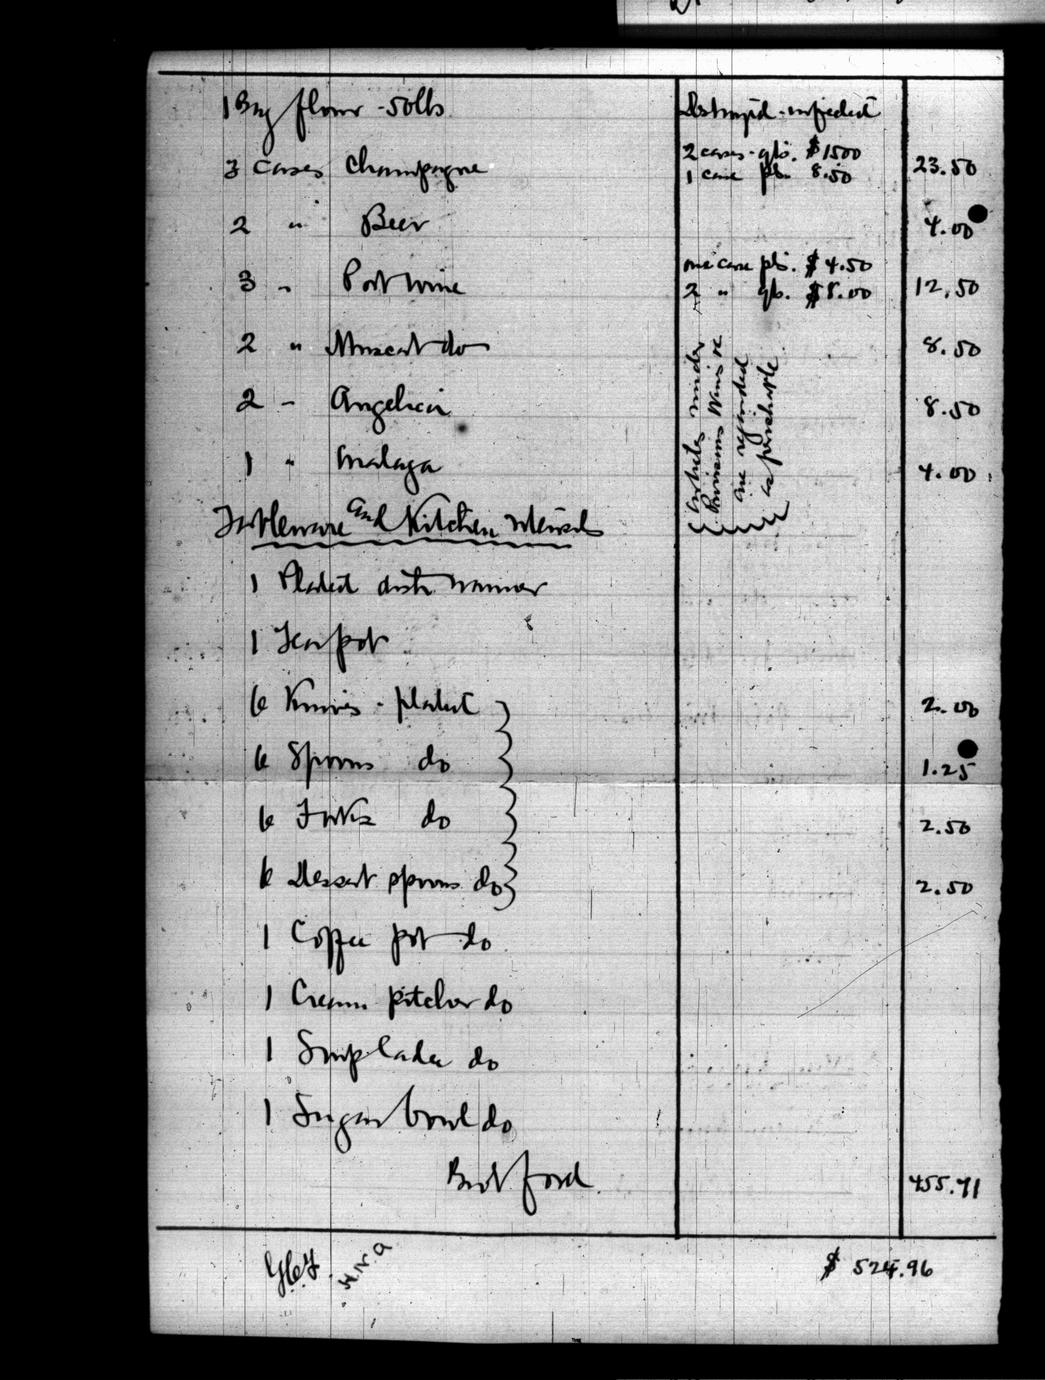 1 Bag flour - 50lbs. Destroyed - infected
2 cases - qts. $15.00
3 cases Champagne 23.50
1 case pts. 8.50
2 " Beer 4.00
one case pts. $4.50
3 " Port wine 12.50
2 " qts. $8.00
2 " Muscat do 8.50
2 " Angelica 8.50
1 " Malaga 4.00
Articles under
Provisions Wines &c
are regarded
as perishable
Tableware and Kitchen utensils
1 Plated dish warmer
1 Tea pot
6 Knives - plated 2.00
6 Spoons do 1.25
6 Forks do 2.50
6 Dessert spoons do 2.50
1 Coffee pot do
1 Cream pitcher do
1 Soup Ladle do
1 Sugar bowl do
Brot ford. 455.71
$ 524.96